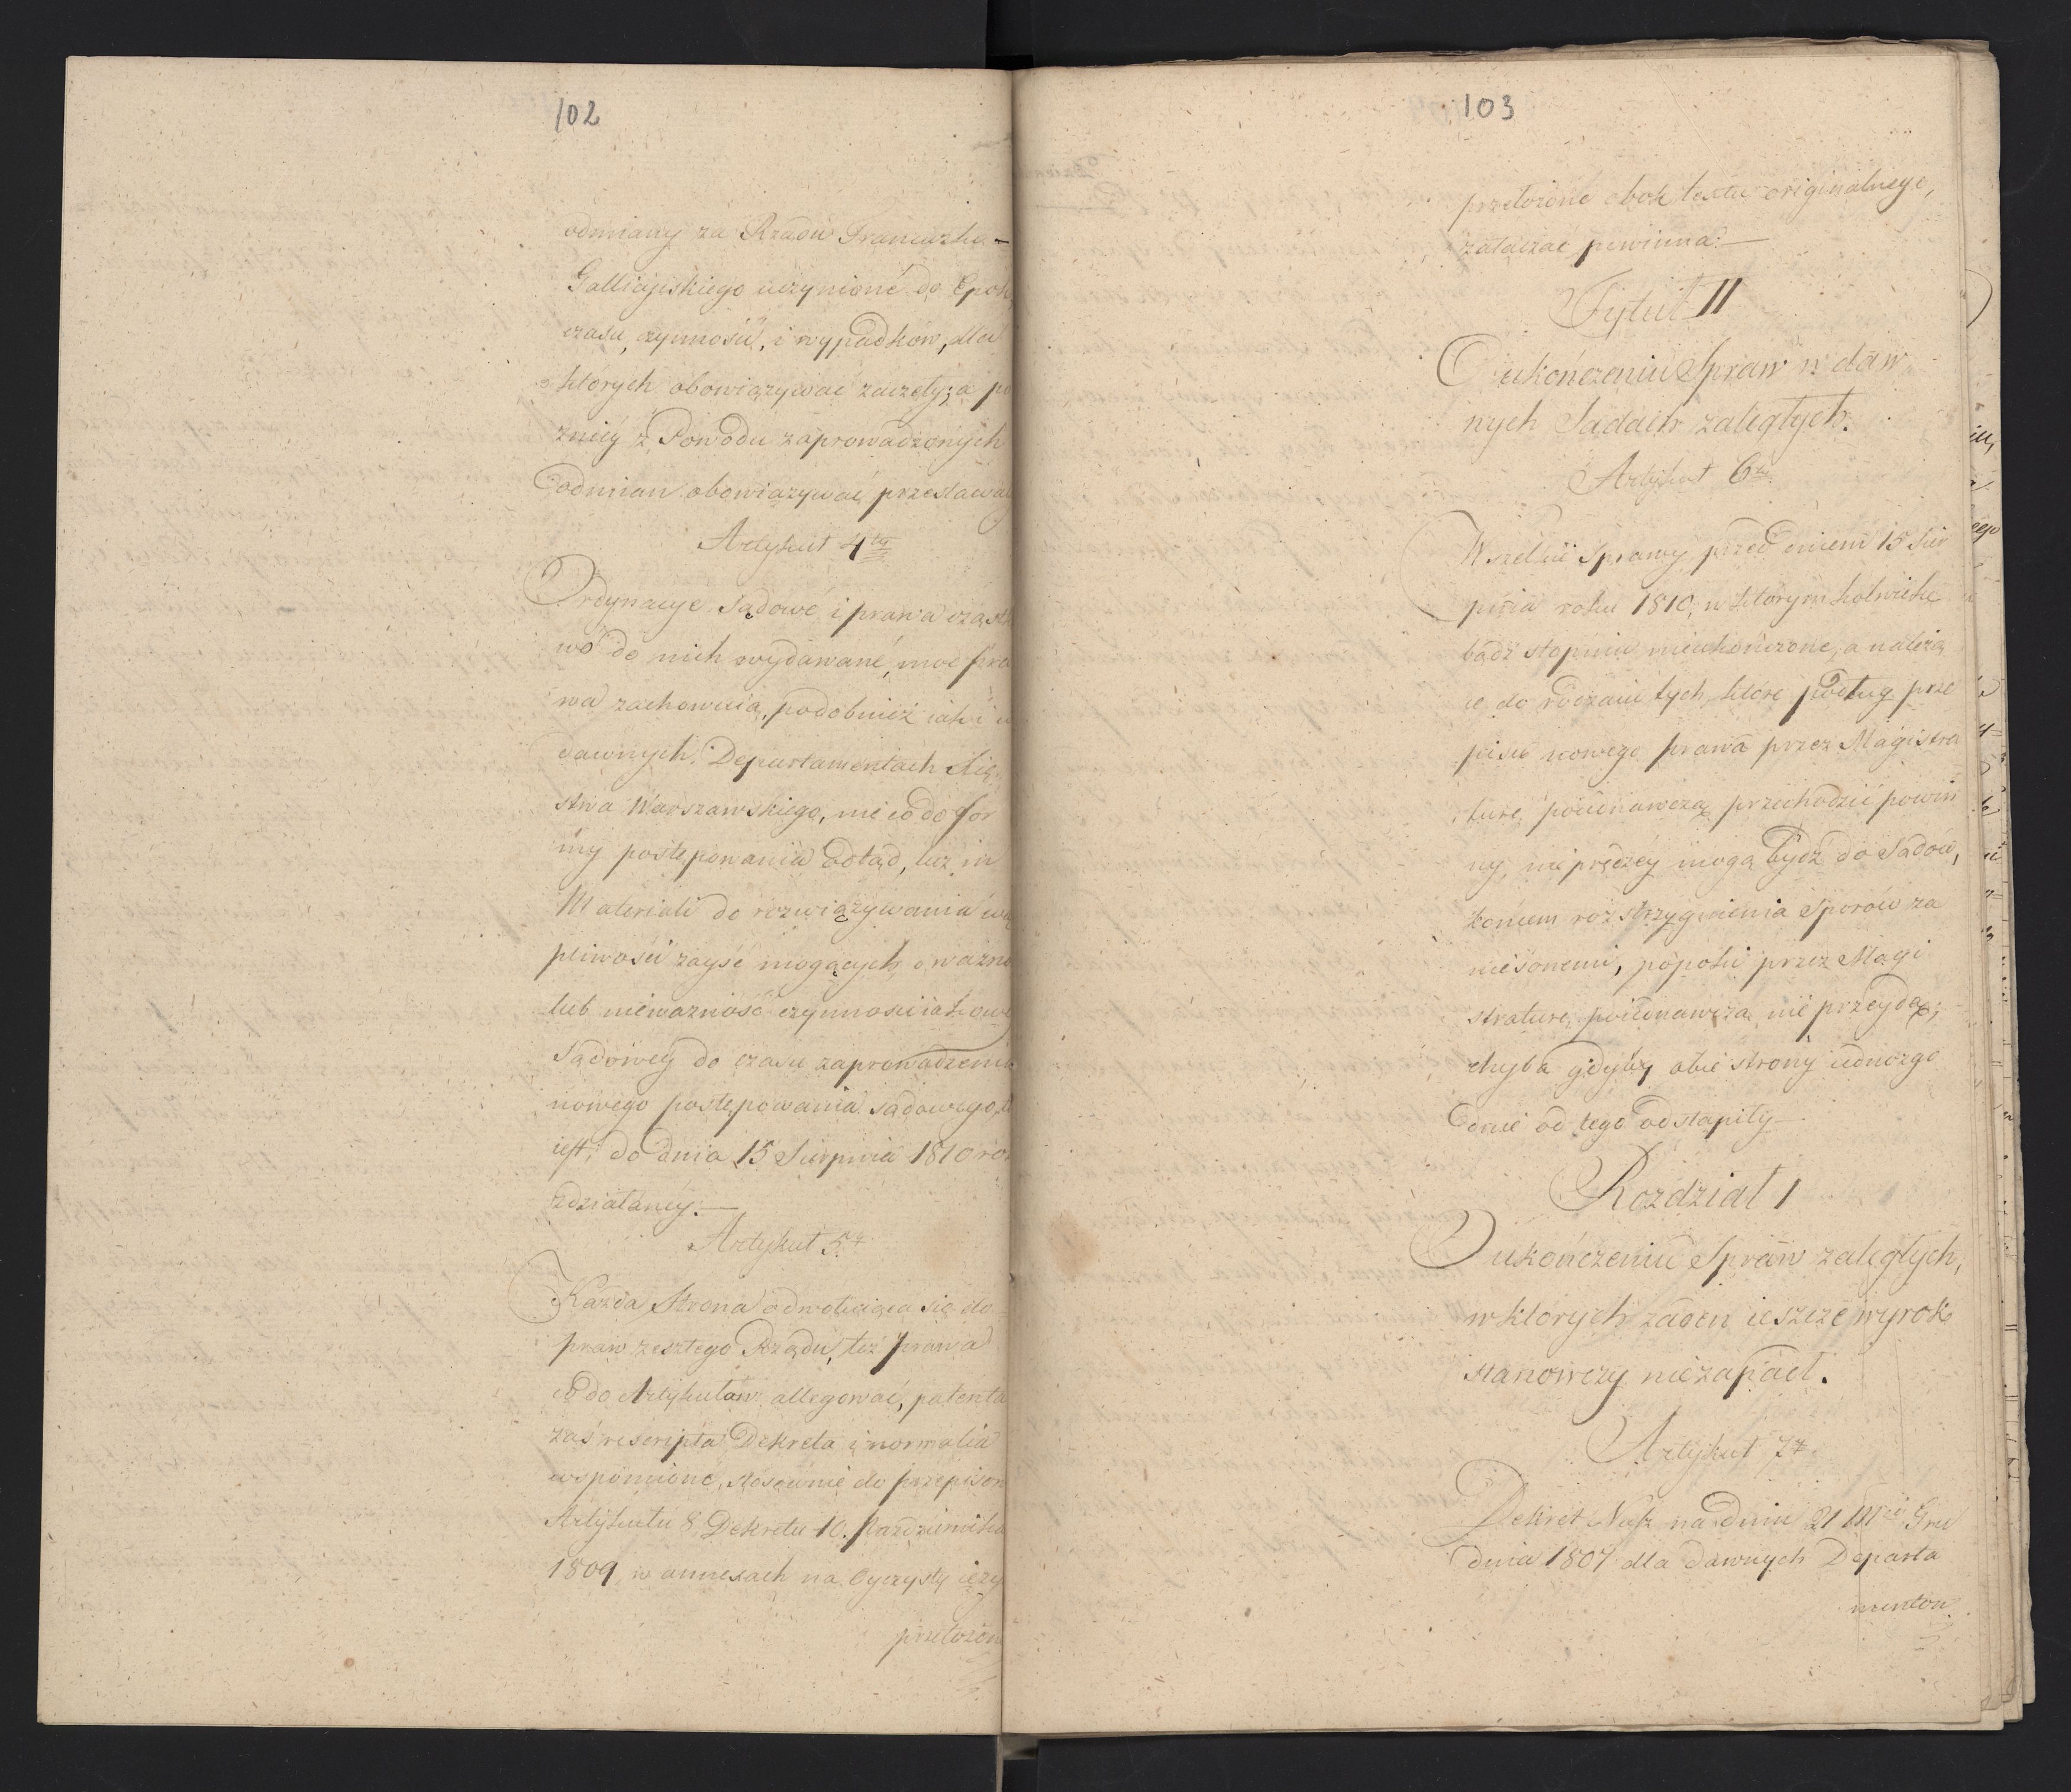 102
odmiany za Rządu Francuzko-
Galliciyskiego uczynione do Epok,
czasu, czynnosci, i wypadkow, dla
ktorych obowiązywac zaczęły; a po
zniey z Powodu zaprowadzonych
odmian obowiązywać przestawa
Artykuł 4ty
Ordynacye Sądowe i prawa cząstk
wo do nich wydawane, moc pra
wa zachowuią, podobnież iak i w
dawnych Departamentach Xię
stwa Warszawskiego, nie co do for
my postępowania dotąd, lecz in
Materiali do rozwiązywania wą
pliwosci zayść mogących o ważno
lub nieważność czynnosci iakowe
Sądowey do czasu zaprowadzenia
nowego postępowania sądowego, to
iest: do dnia 15 Sierpnia 1810 ro
zdziałaney.—
Artykuł 5ty
Każda Strona odwołuiąca się do
praw zeszłego Rządu, też prawa
co do Artykułow allegować, patenta
zaś rescripta Dekreta i normalia
wspomnione, stosownie do przepisow
Artykułu 8 Dekretu 10. Pazdziernika
1809 w annexach na Oyczysty ięzy
przełożon
103
przełożone obok textu originalnego,
załączać powinna.—
Tytuł II
O ukończeniu Spraw w daw
nych Sądach zaległych.
Artykuł 6ty
Wszelkie Sprawy przed dniem 15 Sier
pnia roku 1810, w którymkolwiek
bądź stopniu nieukończone, a należą
ce do rodzaiu tych, które podług prze
pisu nowego prawa przez Magistra
turę poiednawczą przechodzić powin
ny, nie prędzey mogą bydź do Sądow,
końcem rozstrzygnienia Sporów za
niesonemi, popoki przez Magi
straturę poiednawczą nie przeydą;
chyba gdyby obie strony iednozgo
dnie od tego odstąpiły—
Rozdział 1
O ukończeniu Spraw zaległych,
w ktorych żaden ieszcze wyrok
stanowczy nie zapadł.
Artykuł 7my
Dekret Nasz na dniu 21 Mca Gru
dnia 1807 dla dawnych Departa
mentow